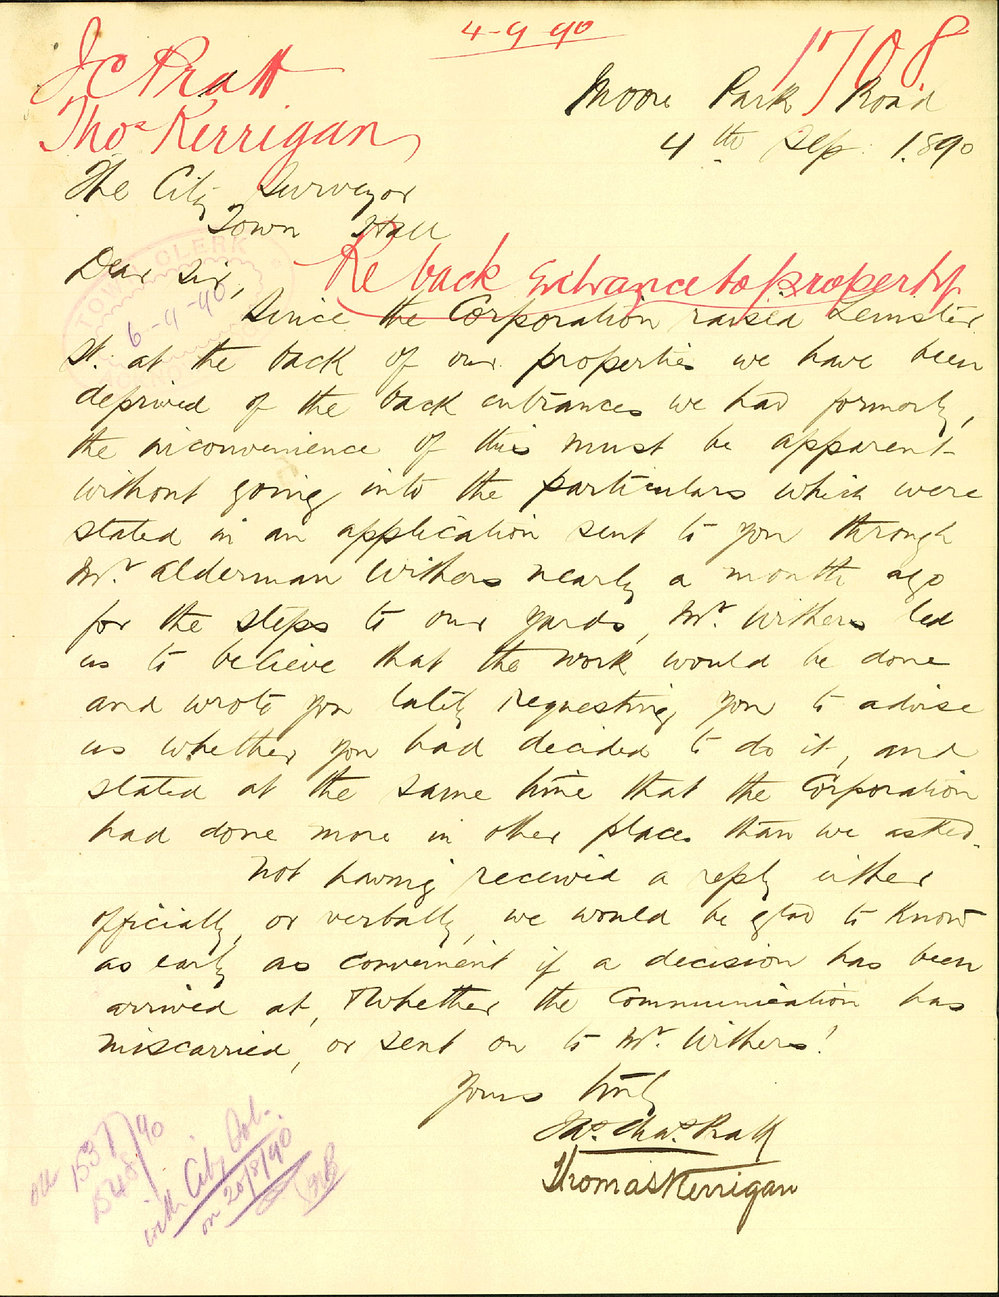 4-9-90
1708
J C Pratt
Thos Kerrigan
Moore Park Road
4th Sep. 1890
The City Surveyor
Town Hall
Dear Sir,
Re back Entrance to property
TOWN CLERK
6-9-90
Since the Corporation raised Leinster
St. at the back of our properties we have been
deprived of the back entrances we had formerly,
the inconvenience of this must be apparent
without going into the particulars which were
stated in an application sent to you through
Mr Alderman Withers nearly a month ago
for the steps to our yards, Mr Withers led
us to believe that the work would be done
and wrote you lately requesting you to advise
us whether you had decided to do it, and
stated at the same time that the Corporation
had done more in other places than we asked.
Not having received a reply either
officially, or verbally, we would be glad to know
as early as convenient if a decision has been
arrived at, & whether the communication has
miscarried, or sent on to Mr Withers!
Yours truly
Jas. Chas. Pratt
Thomas Kerrigan
1537/90
1548/90
with City Sol.
on 20/8/90